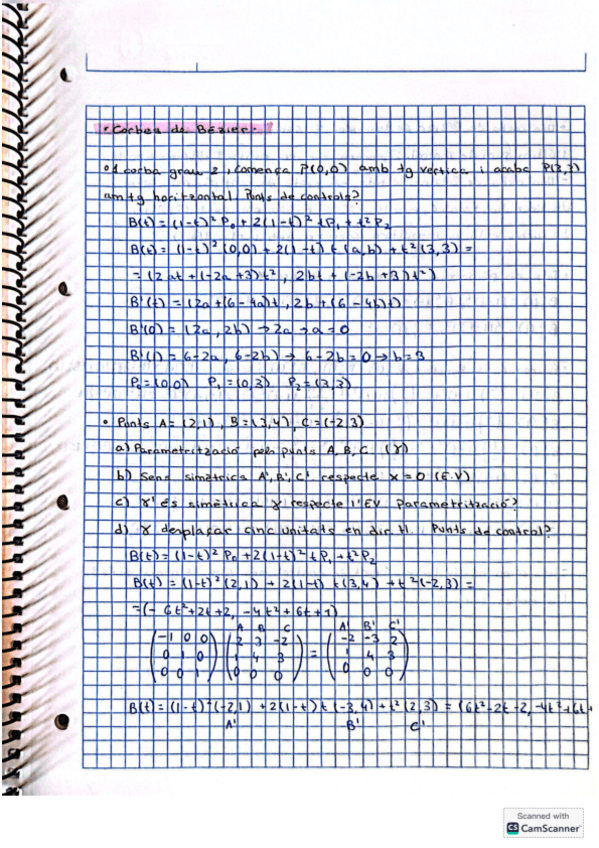 • Corbes de Bézier.
o 1 corba grau 2, comença P(0,0) amb tg vertica i acaba P(3,3)
am tg horitzontal. Punts de controls?
B(t) = (1-t)² P₀ + 2(1-t)² tP₁ + t² P₂
B(t) = (1-t)² (0,0) + 2(1-t) t (a,b) + t² (3,3) =
= (2at + (-2a+3)t², 2bt + (-2b+3)t²)
B'(t) = (2a + (6-4a)t, 2b + (6-4b)t)
B'(0) = (2a, 2b) → 2a → a = 0
B'(1) = 6-2a, 6-2b) → 6-2b = 0 → b = 3
P₀ = (0,0) P₁ = (0,3) P₂ = (3,3)
• Punts A = (2,1), B = (3,4), C = (-2,3)
a) Parametrització pels punts A, B, C. (γ)
b) Sens simètrics A', B', C' respecte x=0 (E.V)
c) γ' és simètrica γ respecte l'EV Parametrització?
d) γ desplaçar cinc unitats en dir. H. Punts de control?
B(t) = (1-t)² P₀ + 2(1-t)² tP₁ + t² P₂
B(t) = (1-t)² (2,1) + 2(1-t) t (3,4) + t² (-2,3) =
= (-6t² + 2t + 2, -4t² + 6t + 1)
A B C A' B' C'
(-1 0 0) (2 3 -2) (-2 -3 2)
(0 1 0) (1 4 3) = (1 4 3)
(0 0 1) (0 0 0) (0 0 0)
B(t) = (1-t)² (-2,1) + 2(1-t) t (-3,4) + t² (2,3) = (6t² - 2t - 2, -4t² + 6t +
A' B' C'
Scanned with
CS CamScanner